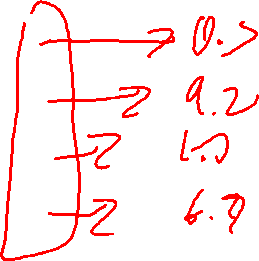 0.5
9.2
1.0
6.9